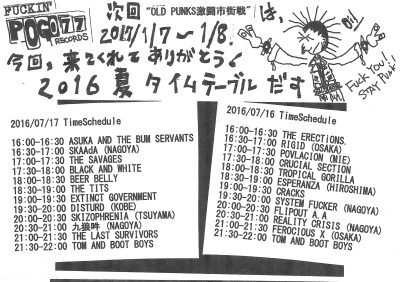 FUCKIN'
POGO77
RECORDS
次回 "OLD PUNKS激闘市街戦" は、
2017/1/7〜1/8.
Oi!
今回、来てくれてありがとう。
2016 夏 タイムテーブル だす
Fuck You!
STAY Punk!
2016/07/17 TimeSchedule
16:00-16:30 ASUKA AND THE BUM SERVANTS
16:30-17:00 SKAAdA (NAGOYA)
17:00-17:30 THE SAVAGES
17:30-18:00 BLACK AND WHITE
18:00-18:30 BEER BELLY
18:30-19:00 THE TITS
19:00-19:30 EXTINCT GOVERNMENT
19:30-20:00 DISTURD (KOBE)
20:00-20:30 SKIZOPHRENIA (TSUYAMA)
20:30-21:00 九狼吽 (NAGOYA)
21:00-21:30 THE LAST SURVIVORS
21:30-22:00 TOM AND BOOT BOYS
2016/07/16 TimeSchedule
16:00-16:30 THE ERECTIONS.
16:30-17:00 RIGID (OSAKA)
17:00-17:30 POVLACION (MIE)
17:30-18:00 CRUCIAL SECTION
18:00-18:30 TROPICAL GORILLA
18:30-19:00 ESPERANZA (HIROSHIMA)
19:00-19:30 CRACKS
19:30-20:00 SYSTEM FUCKER (NAGOYA)
20:00-20:30 FLIPOUT A.A
20:30-21:00 REALITY CRISIS (NAGOYA)
21:00-21:30 FEROCIOUS X (OSAKA)
21:30-22:00 TOM AND BOOT BOYS